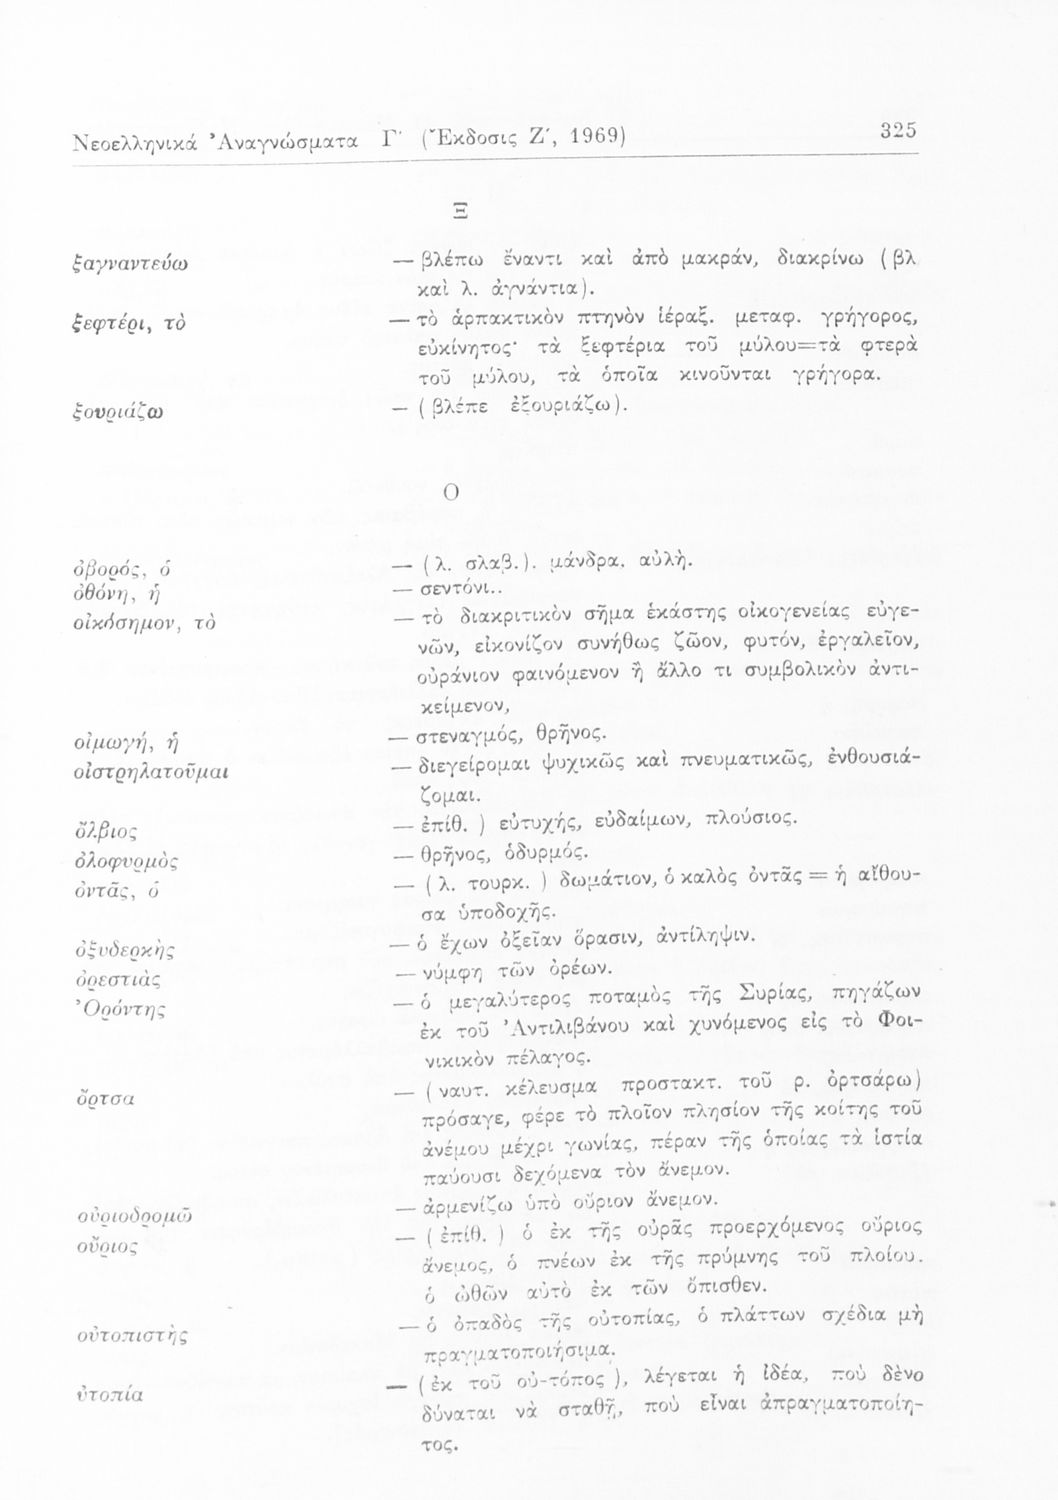 Νεοελληνικά Ἀναγνώσματα Γ' (Ἔκδοσις Ζ', 1969) 325
Ξ
ξαγναντεύω — βλέπω ἔναντι καὶ ἀπὸ μακράν, διακρίνω (βλ
καὶ λ. ἀγνάντια).
ξεφτέρι, τὸ — τὸ ἁρπακτικὸν πτηνὸν ἱέραξ. μεταφ. γρήγορος,
εὐκίνητος· τὰ ξεφτέρια τοῦ μύλου=τὰ φτερὰ
τοῦ μύλου, τὰ ὁποῖα κινοῦνται γρήγορα.
ξουριάζω — (βλέπε ἐξουριάζω).
Ο
ὀβορός, ὁ — (λ. σλαβ.). μάνδρα, αὐλὴ.
ὀθόνη, ἡ — σεντόνι..
οἰκόσημον, τὸ — τὸ διακριτικὸν σῆμα ἑκάστης οἰκογενείας εὐγε-
νῶν, εἰκονίζον συνήθως ζῶον, φυτόν, ἐργαλεῖον,
οὐράνιον φαινόμενον ἢ ἄλλο τι συμβολικὸν ἀντι-
κείμενον,
οἰμωγή, ἡ — στεναγμός, θρῆνος.
οἰστρηλατοῦμαι — διεγείρομαι ψυχικῶς καὶ πνευματικῶς, ἐνθουσιά-
ζομαι.
ὄλβιος — ἐπίθ. ) εὐτυχής, εὐδαίμων, πλούσιος.
ὀλοφυρμὸς — θρῆνος, ὀδυρμός.
ὀντᾶς, ὁ — (λ. τουρκ. ) δωμάτιον, ὁ καλὸς ὀντᾶς = ἡ αἴθου-
σα ὑποδοχῆς.
ὀξυδερκὴς — ὁ ἔχων ὀξεῖαν ὅρασιν, ἀντίληψιν.
ὀρεστιὰς — νύμφη τῶν ὀρέων.
Ὀρόντης — ὁ μεγαλύτερος ποταμὸς τῆς Συρίας, πηγάζων
ἐκ τοῦ Ἀντιλιβάνου καὶ χυνόμενος εἰς τὸ Φοι-
νικικὸν πέλαγος.
ὄρτσα — (ναυτ. κέλευσμα προστακτ. τοῦ ρ. ὀρτσάρω)
πρόσαγε, φέρε τὸ πλοῖον πλησίον τῆς κοίτης τοῦ
ἀνέμου μέχρι γωνίας, πέραν τῆς ὁποίας τὰ ἱστία
παύουσι δεχόμενα τὸν ἄνεμον.
οὐριοδρομῶ — ἀρμενίζω ὑπὸ οὔριον ἄνεμον.
οὔριος — (ἐπίθ. ) ὁ ἐκ τῆς οὐρᾶς προερχόμενος οὔριος
ἄνεμος, ὁ πνέων ἐκ τῆς πρύμνης τοῦ πλοίου.
ὁ ὠθῶν αὐτὸ ἐκ τῶν ὄπισθεν.
οὐτοπιστὴς — ὁ ὀπαδὸς τῆς οὐτοπίας, ὁ πλάττων σχέδια μὴ
πραγματοποιήσιμα.
ὐτοπία — (ἐκ τοῦ οὐ-τόπος ), λέγεται ἡ ἰδέα, ποὺ δὲνο
δύναται νὰ σταθῇ, ποὺ εἶναι ἀπραγματοποίη-
τος.